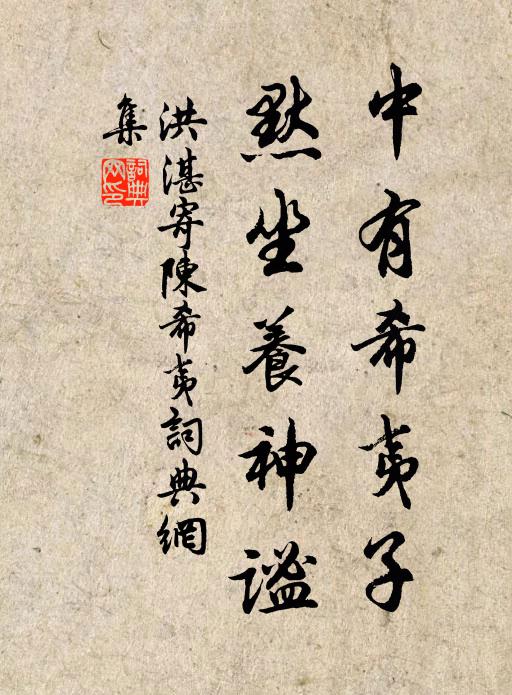 中有希夷子
默坐養神謐
洪湛寄陳希夷詞典網
集
詞典网印